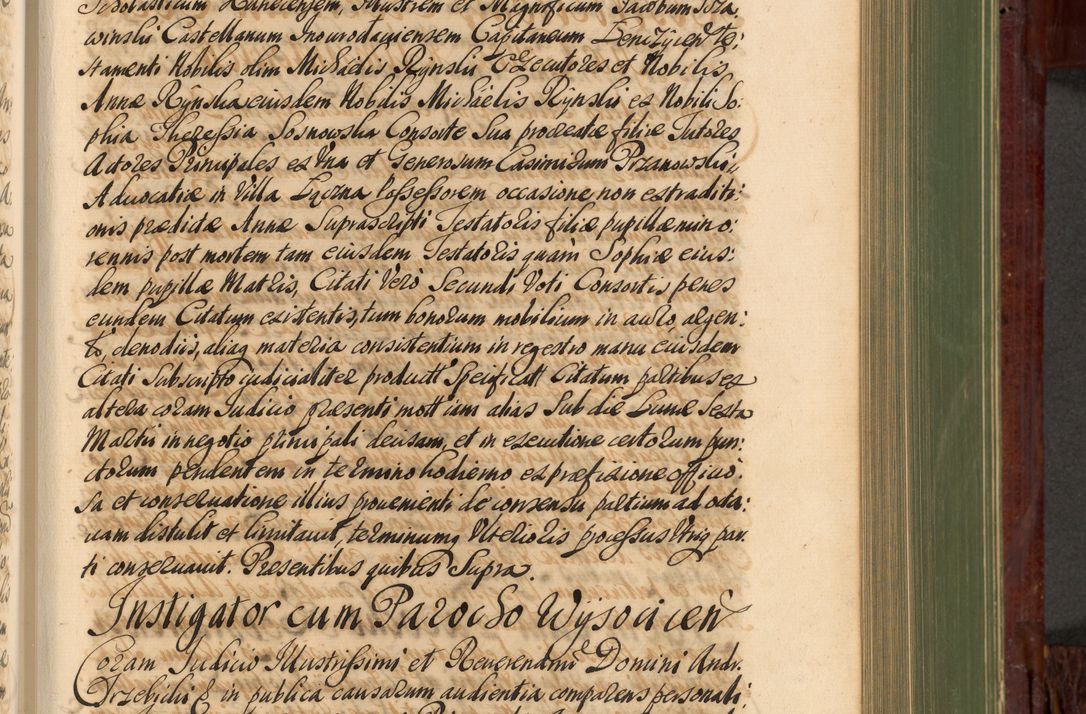 Scholasticum Lanecensem, Illustrem et Magnificum Jacobum
winski Castellanum Inowrodaviensem Capitaneum Lencziciens Te:
stamenti Nobilis olim Michaelis Rynski Executores et Nobilis
Annæ Rynska eiusdem Nobilis Michaelis Rynski ex Nobili So:
phia Theressia Sosnowska Consorte Sua procreatæ filiæ Tutores
Actores Principales ex Una et Generosum Casimirum Przanowski,
Advocatiæ in Villa Possessorem occasione non extraditi:
onis prædictæ Annæ Suprascripti Testatoris filiæ pupillæ mino:
rennis post mortem tam eiusdem Testatoris quam Sophiæ eius:
dem pupillæ Matris, Citati Vero Secundi Voti Consortis penes
eundem Citatum existentis, tum bonorum mobilium in auro, argen:
to, clenodiis, aliaq materia consistentium in regestro manu eiusdem
Citati Subscripto judicialiter product Specificatt Citatum partibus ex
altera coram Judicio præsenti mott iam alias Sub die Lunæ Sexta
Martii in negotio principali decisam, et in executione certorum pun:
ctorum pendentem in termino hodierno ex præfixione officio:
sa et conservatione illius provenienti de consensu partium ad octa:
vam distulit et limitavit, terminumq Ulterioris processus Utriq par:
ti conservavit. Præsentibus quibus Supra.
Instigator cum Parocho Wysocicen
Coram Judicio Illustrissimi et Reverendmi Domini Andr.
Trzebicki & in publica causarum audientia comparens personali: